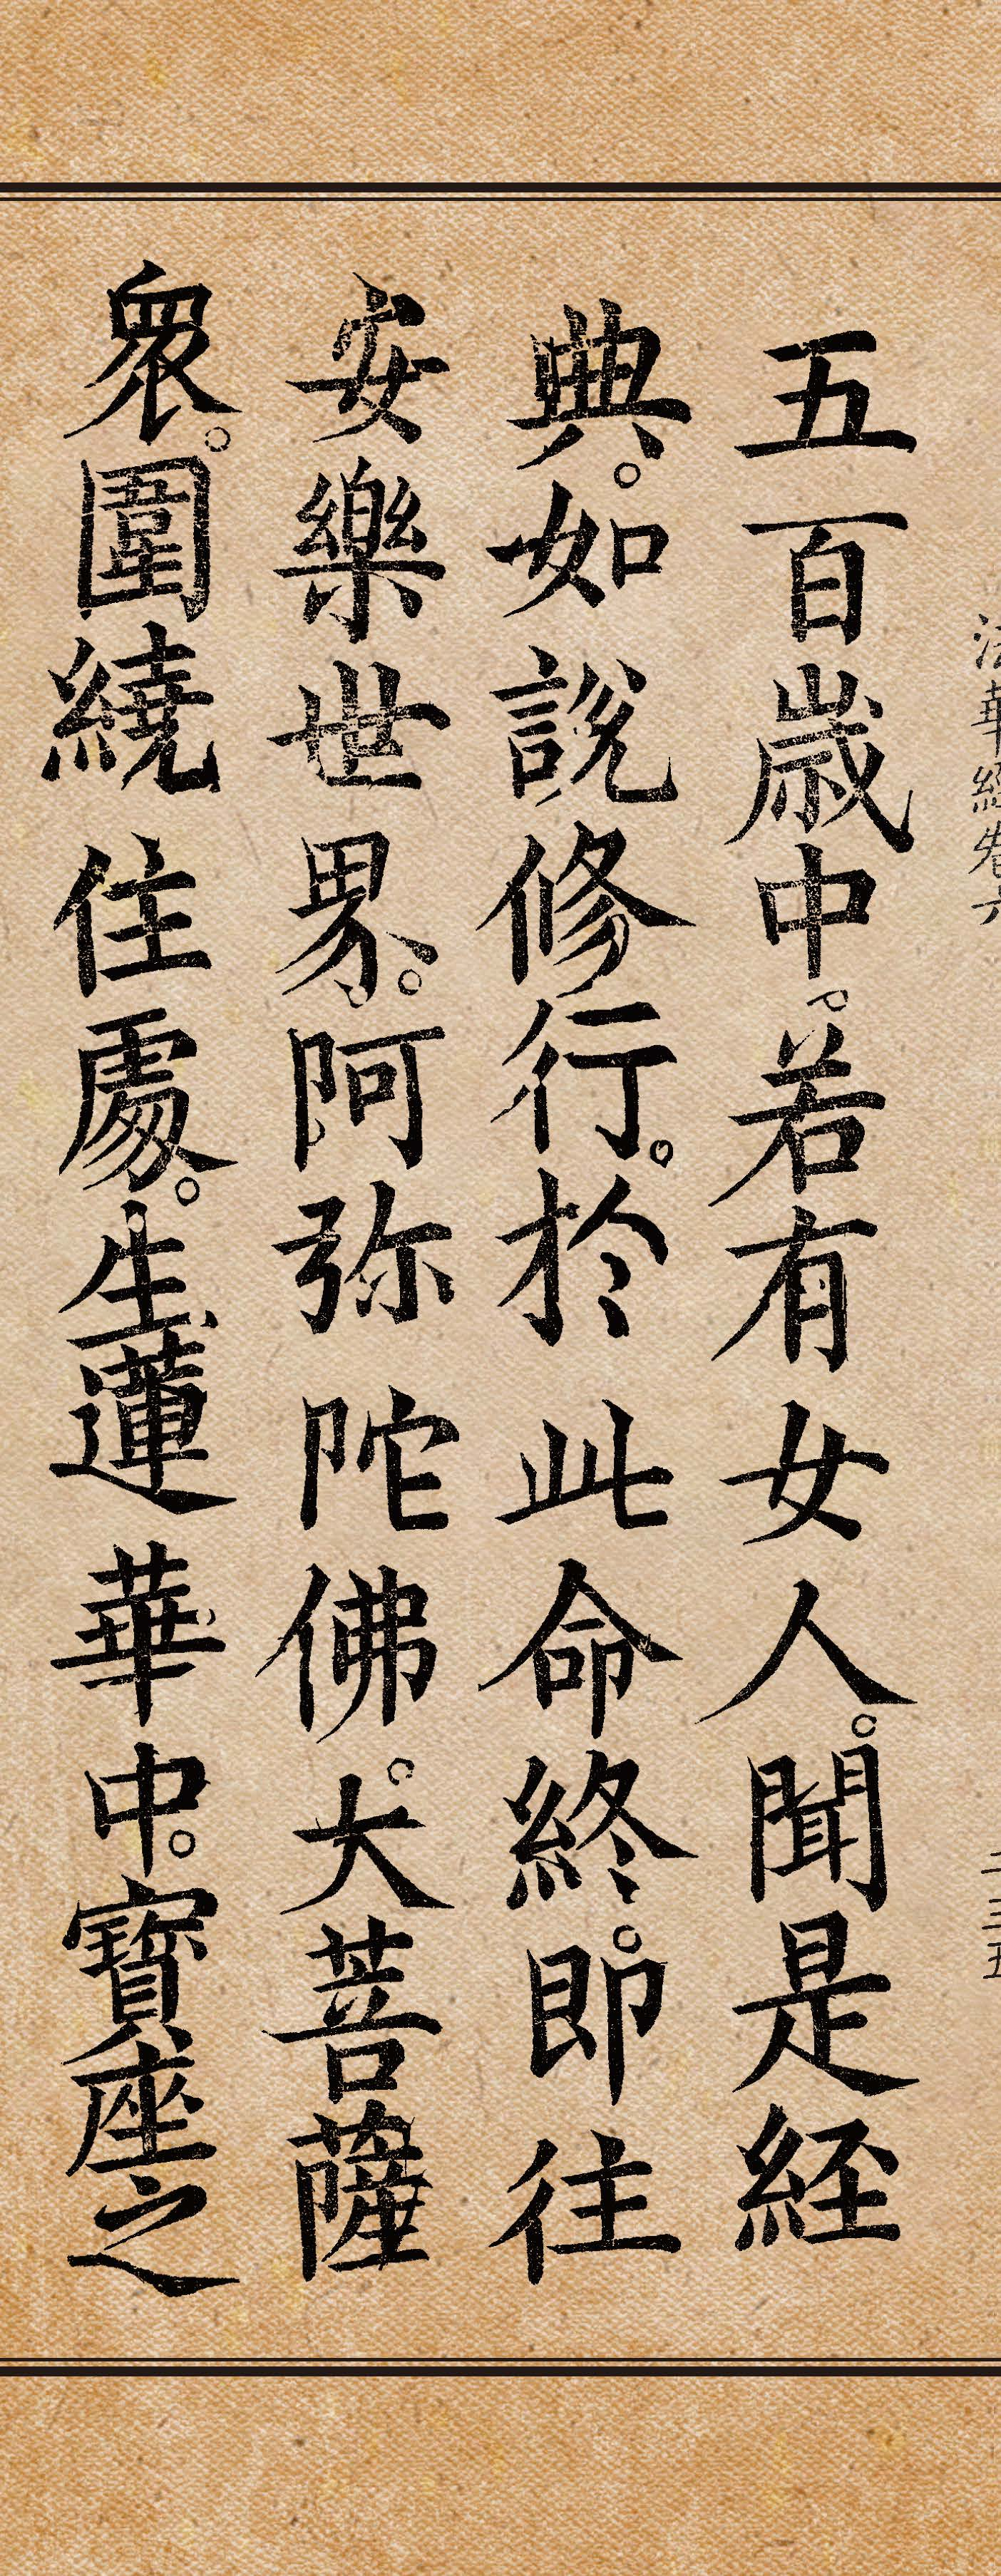 法華經卷六
二三五
五百歲中。若有女人。聞是経
典。如說修行。於此命終。即往
安樂世界。阿弥陀佛。大菩薩
衆。圍繞住處。生蓮華中。寶座之